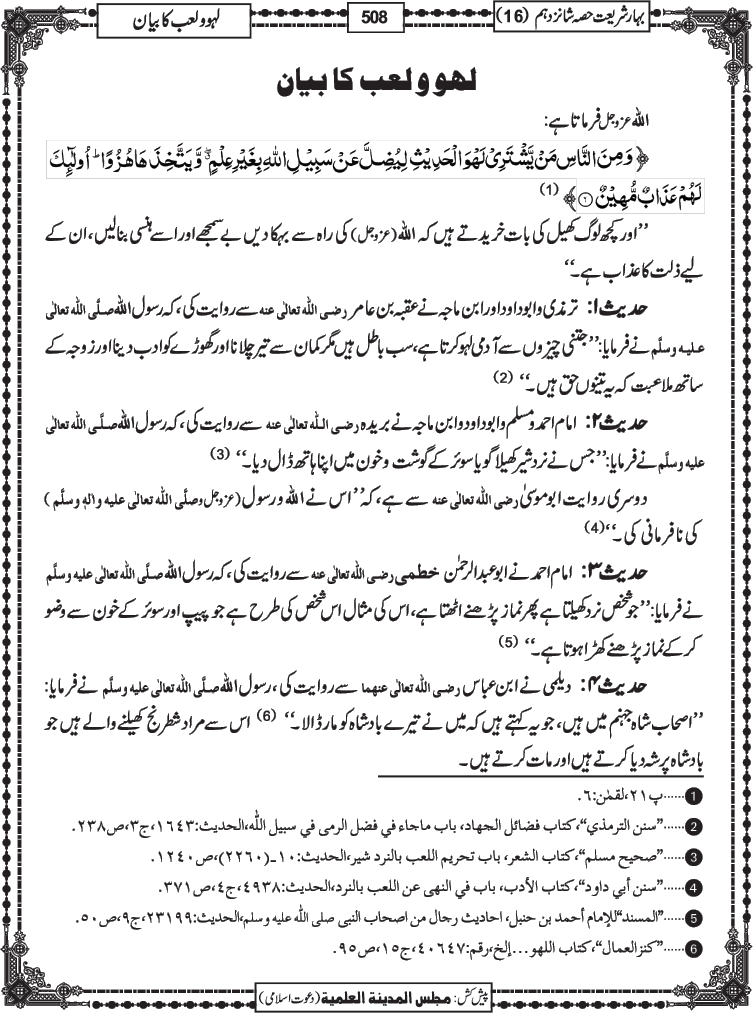 بہارِ شریعت حصہ شانزدہم (16)
508
لہو و لعب کا بیان
لهو و لعب کا بیان
اللہ عزوجل فرماتا ہے:
﴿ وَ مِنَ النَّاسِ مَنْ یَّشْتَرِیْ لَهْوَ الْحَدِیْثِ لِیُضِلَّ عَنْ سَبِیْلِ اللّٰهِ بِغَیْرِ عِلْمٍ ۖۗ وَّ یَتَّخِذَهَا هُزُوًا ؕ اُولٰٓىٕكَ
لَهُمْ عَذَابٌ مُّهِیْنٌ ۝۶ ﴾ (1)
’’اور کچھ لوگ کھیل کی بات خریدتے ہیں کہ اللہ (عزوجل) کی راہ سے بہکا دیں بے سمجھے اور اسے ہنسی بنالیں، ان کے
لیے ذلت کا عذاب ہے۔‘‘
حدیث ۱: ترمذی و ابو داود اور ابن ماجہ نے عقبہ بن عامر رضی اللہ تعالٰی عنہ سے روایت کی، کہ رسول اللہ صلَّی اللہ تعالٰی
علیہ وسلَّم نے فرمایا: ’’جتنی چیزوں سے آدمی لہو کرتا ہے، سب باطل ہیں مگر کمان سے تیر چلانا اور گھوڑے کو ادب دینا اور زوجہ کے
ساتھ ملاعبت کہ یہ تینوں حق ہیں۔‘‘ (2)
حدیث ۲: امام احمد و مسلم و ابو داود و ابن ماجہ نے بریدہ رضی اللہ تعالٰی عنہ سے روایت کی، کہ رسول اللہ صلَّی اللہ تعالٰی
علیہ وسلَّم نے فرمایا: ’’جس نے نردشیر کھیلا گویا سوئر کے گوشت و خون میں اپنا ہاتھ ڈال دیا۔‘‘ (3)
دوسری روایت ابو موسیٰ رضی اللہ تعالٰی عنہ سے ہے، کہ ’’اس نے اللہ و رسول (عزوجل وصلَّی اللہ تعالٰی علیہ واٰلہٖ وسلَّم)
کی نافرمانی کی۔‘‘ (4)
حدیث ۳: امام احمد نے ابو عبدالرحمٰن خطمی رضی اللہ تعالٰی عنہ سے روایت کی، کہ رسول اللہ صلَّی اللہ تعالٰی علیہ وسلَّم
نے فرمایا: ’’جو شخص نرد کھیلتا ہے پھر نماز پڑھنے اٹھتا ہے، اس کی مثال اس شخص کی طرح ہے جو پیپ اور سوئر کے خون سے وضو
کر کے نماز پڑھنے کھڑا ہوتا ہے۔‘‘ (5)
حدیث ۴: دیلمی نے ابن عباس رضی اللہ تعالٰی عنہما سے روایت کی، رسول اللہ صلَّی اللہ تعالٰی علیہ وسلَّم نے فرمایا:
’’اصحاب شاہ جہنم میں ہیں، جو یہ کہتے ہیں کہ میں نے تیرے بادشاہ کو مار ڈالا۔‘‘ (6) اس سے مراد شطرنج کھیلنے والے ہیں جو
بادشاہ پر شہ دیا کرتے ہیں اور مات کرتے ہیں۔
1......پ۲۱، لقمٰن: ۶.
2......’’سنن الترمذي‘‘، کتاب فضائل الجهاد، باب ماجاء في فضل الرمی في سبيل الله، الحديث: ۱۶۴۳، ج۳، ص۲۳۸.
3......’’صحيح مسلم‘‘، کتاب الشعر، باب تحريم اللعب بالنرد شير، الحديث: ۱۰-(۲۲۶۰)، ص۱۲۴۰.
4......’’سنن أبي داود‘‘، کتاب الأدب، باب في النهى عن اللعب بالنرد، الحديث: ۴۹۳۸، ج۴، ص۳۷۱.
5......’’المسند‘‘ للإمام أحمد بن حنبل، احاديث رجال من اصحاب النبى صلى الله عليه وسلم، الحديث: ۲۳۱۹۹، ج۹، ص۵۰.
6......’’کنزالعمال‘‘، کتاب اللهو...إلخ، رقم: ۴۰۶۴۷، ج۱۵، ص۹۵.
پیش کش: مجلس المدینة العلمیة (دعوت اسلامی)